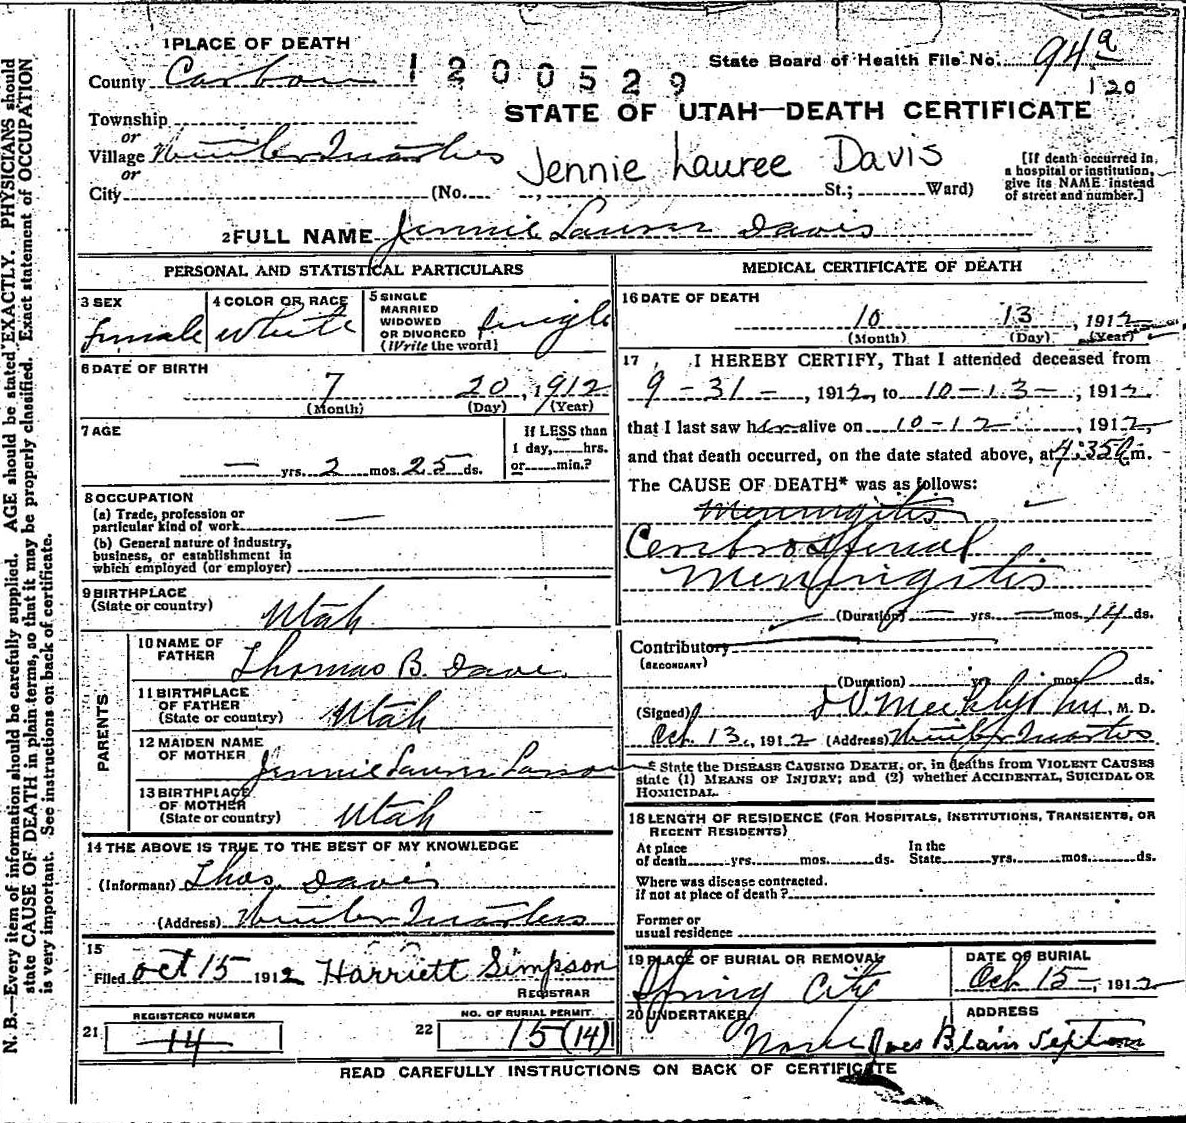 1 PLACE OF DEATH
County Carbon 1200529
State Board of Health File No. 94a
120
STATE OF UTAH—DEATH CERTIFICATE
Township
or
Village Winter Quarters
or
City (No. , St.; Ward)
Jennie Lauree Davis
[If death occurred in a hospital or institution, give its NAME instead of street and number.]
2 FULL NAME Jennie Davis
PERSONAL AND STATISTICAL PARTICULARS
3 SEX female
4 COLOR OR RACE White
5 SINGLE MARRIED WIDOWED OR DIVORCED (Write the word) single
6 DATE OF BIRTH
7 20, 1912
(Month) (Day) (Year)
7 AGE
— yrs. 2 mos. 25 ds.
If LESS than 1 day, hrs. or min.?
8 OCCUPATION
(a) Trade, profession or particular kind of work —
(b) General nature of industry, business, or establishment in which employed (or employer)
9 BIRTHPLACE (State or country) Utah
PARENTS
10 NAME OF FATHER Thomas B. Davis
11 BIRTHPLACE OF FATHER (State or country) Utah
12 MAIDEN NAME OF MOTHER Jennie Larson
13 BIRTHPLACE OF MOTHER (State or country) Utah
14 THE ABOVE IS TRUE TO THE BEST OF MY KNOWLEDGE
(Informant) Thos. Davis
(Address) Winter Quarters
15
Filed Oct 15 1912 Harriett Simpson
REGISTRAR
21 REGISTERED NUMBER 14
22 NO. OF BURIAL PERMIT 15 (14)
MEDICAL CERTIFICATE OF DEATH
16 DATE OF DEATH
10 13, 1912
(Month) (Day) (Year)
17 I HEREBY CERTIFY, That I attended deceased from
9-31-, 1912, to 10-13-, 1912
that I last saw her alive on 10-12, 1912,
and that death occurred, on the date stated above, at 4:35 m.
The CAUSE OF DEATH* was as follows:
Meningitis
Cerebro Spinal
Meningitis
(Duration) — yrs. — mos. 14 ds.
Contributory
(SECONDARY)
(Duration) yrs. mos. ds.
(Signed) M. D.
Oct. 13, 1912 (Address) Winter Quarters
* State the DISEASE CAUSING DEATH, or, in deaths from VIOLENT CAUSES
state (1) MEANS OF INJURY; and (2) whether ACCIDENTAL, SUICIDAL OR
HOMICIDAL.
18 LENGTH OF RESIDENCE (FOR HOSPITALS, INSTITUTIONS, TRANSIENTS, OR
RECENT RESIDENTS)
At place of death yrs. mos. ds. In the State yrs. mos. ds.
Where was disease contracted,
if not at place of death?
Former or
usual residence
19 PLACE OF BURIAL OR REMOVAL Spring City
DATE OF BURIAL Oct. 15-, 1912
20 UNDERTAKER
ADDRESS
READ CAREFULLY INSTRUCTIONS ON BACK OF CERTIFICATE
N. B.—Every item of information should be carefully supplied. AGE should be stated EXACTLY. PHYSICIANS should
state CAUSE OF DEATH in plain terms, so that it may be properly classified. Exact statement of OCCUPATION
is very important. See instructions on back of certificate.